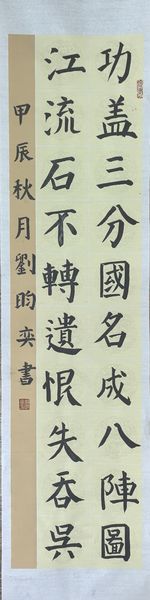 功盖三分國名成八陣圖
江流石不轉遺恨失吞吳
甲辰秋月劉昀奕書